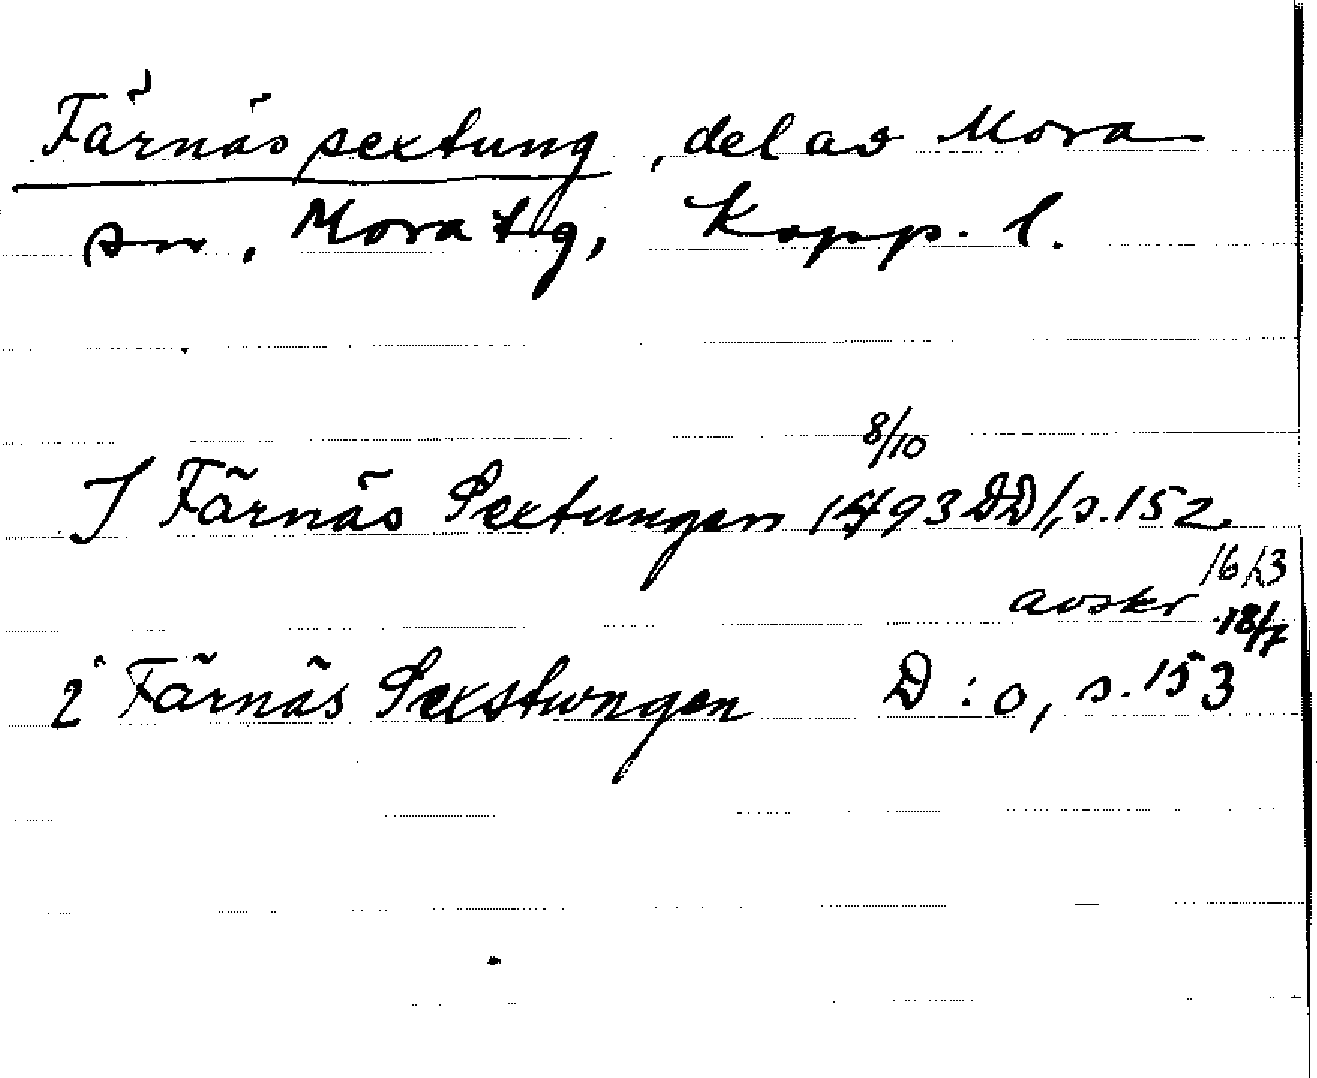 Färnäs sextung, del av Mora
sn, Mora tg, Kopp. l.
8/10
J Färnäs Sextungen 1493 DD 1, s. 152
avskr 16/3
18/7
i Färnäs Sexstungen D:o, s. 153